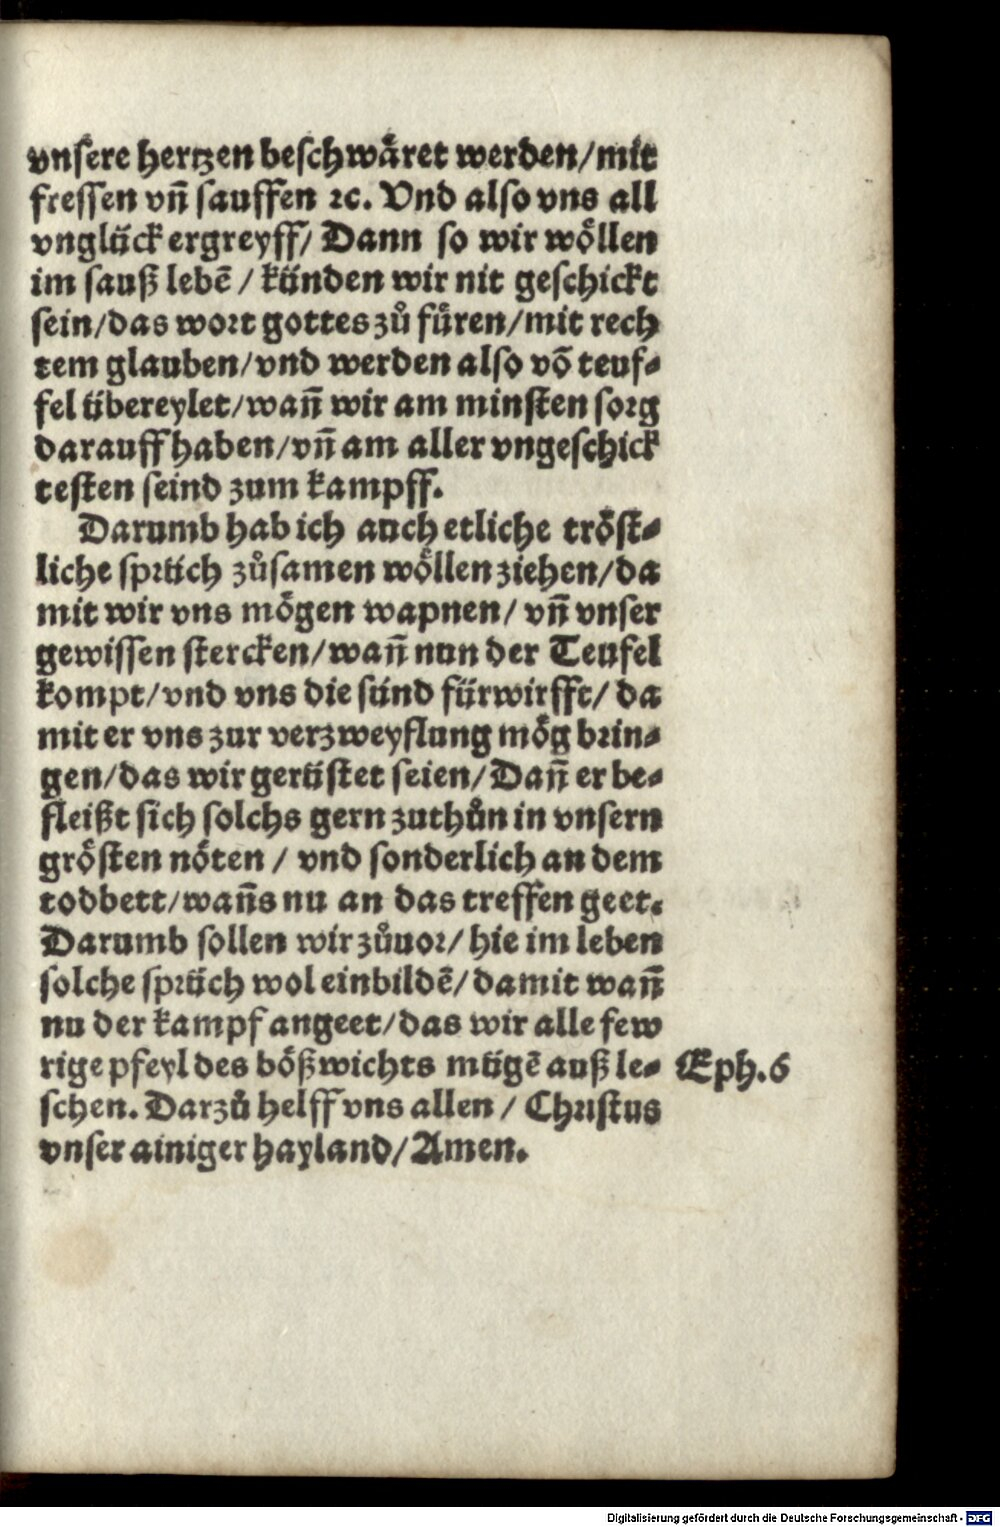 vnſere hertzen beſchwaͤret werden/mit
freſſen vñ ſauffen ꝛc. Vnd alſo vns all
vngluͤck ergreyff/ Dann ſo wir woͤllen
im ſauß lebẽ / kuͤnden wir nit geſchickt
ſein/das woꝛt gottes zuͦ fuͤren/mit rech
tem glauben/vnd werden alſo võ teuf⸗
fel uͤbereylet/wañ wir am minſten ſoꝛg
darauff haben/vñ am aller vngeſchick
teſten ſeind zum kampff.
Darumb hab ich auch etliche troͤſt⸗
liche ſpꝛuͤch zuͦſamen woͤllen ziehen/da
mit wir vns moͤgen wapnen/ vñ vnſer
gewiſſen ſtercken/wañ nun der Teufel
kompt/vnd vns die ſuͤnd fuͤrwirfft/ da
mit er vns zur verzweyflung moͤg bꝛin⸗
gen/das wir geruͤſtet ſeien/Dañ er be⸗
fleißt ſich ſolchs gern zuthuͦn in vnſern
groͤſten noͤten / vnd ſonderlich an dem
todbett/wañs nu an das treffen geet.
Darumb ſollen wir zuͦuoꝛ/ hie im leben
ſolche ſpꝛuͤch wol einbildẽ/damit wañ
nu der kampf angeet/das wir alle few
rige pfeyl des boͤßwichts muͤgẽ auß le⸗ Eph.6
ſchen. Darzuͦ helff vns allen / Chꝛiſtus
vnſer ainiger hayland/Amen.
Digitalisierung gefördert durch die Deutsche Forschungsgemeinschaft - DFG